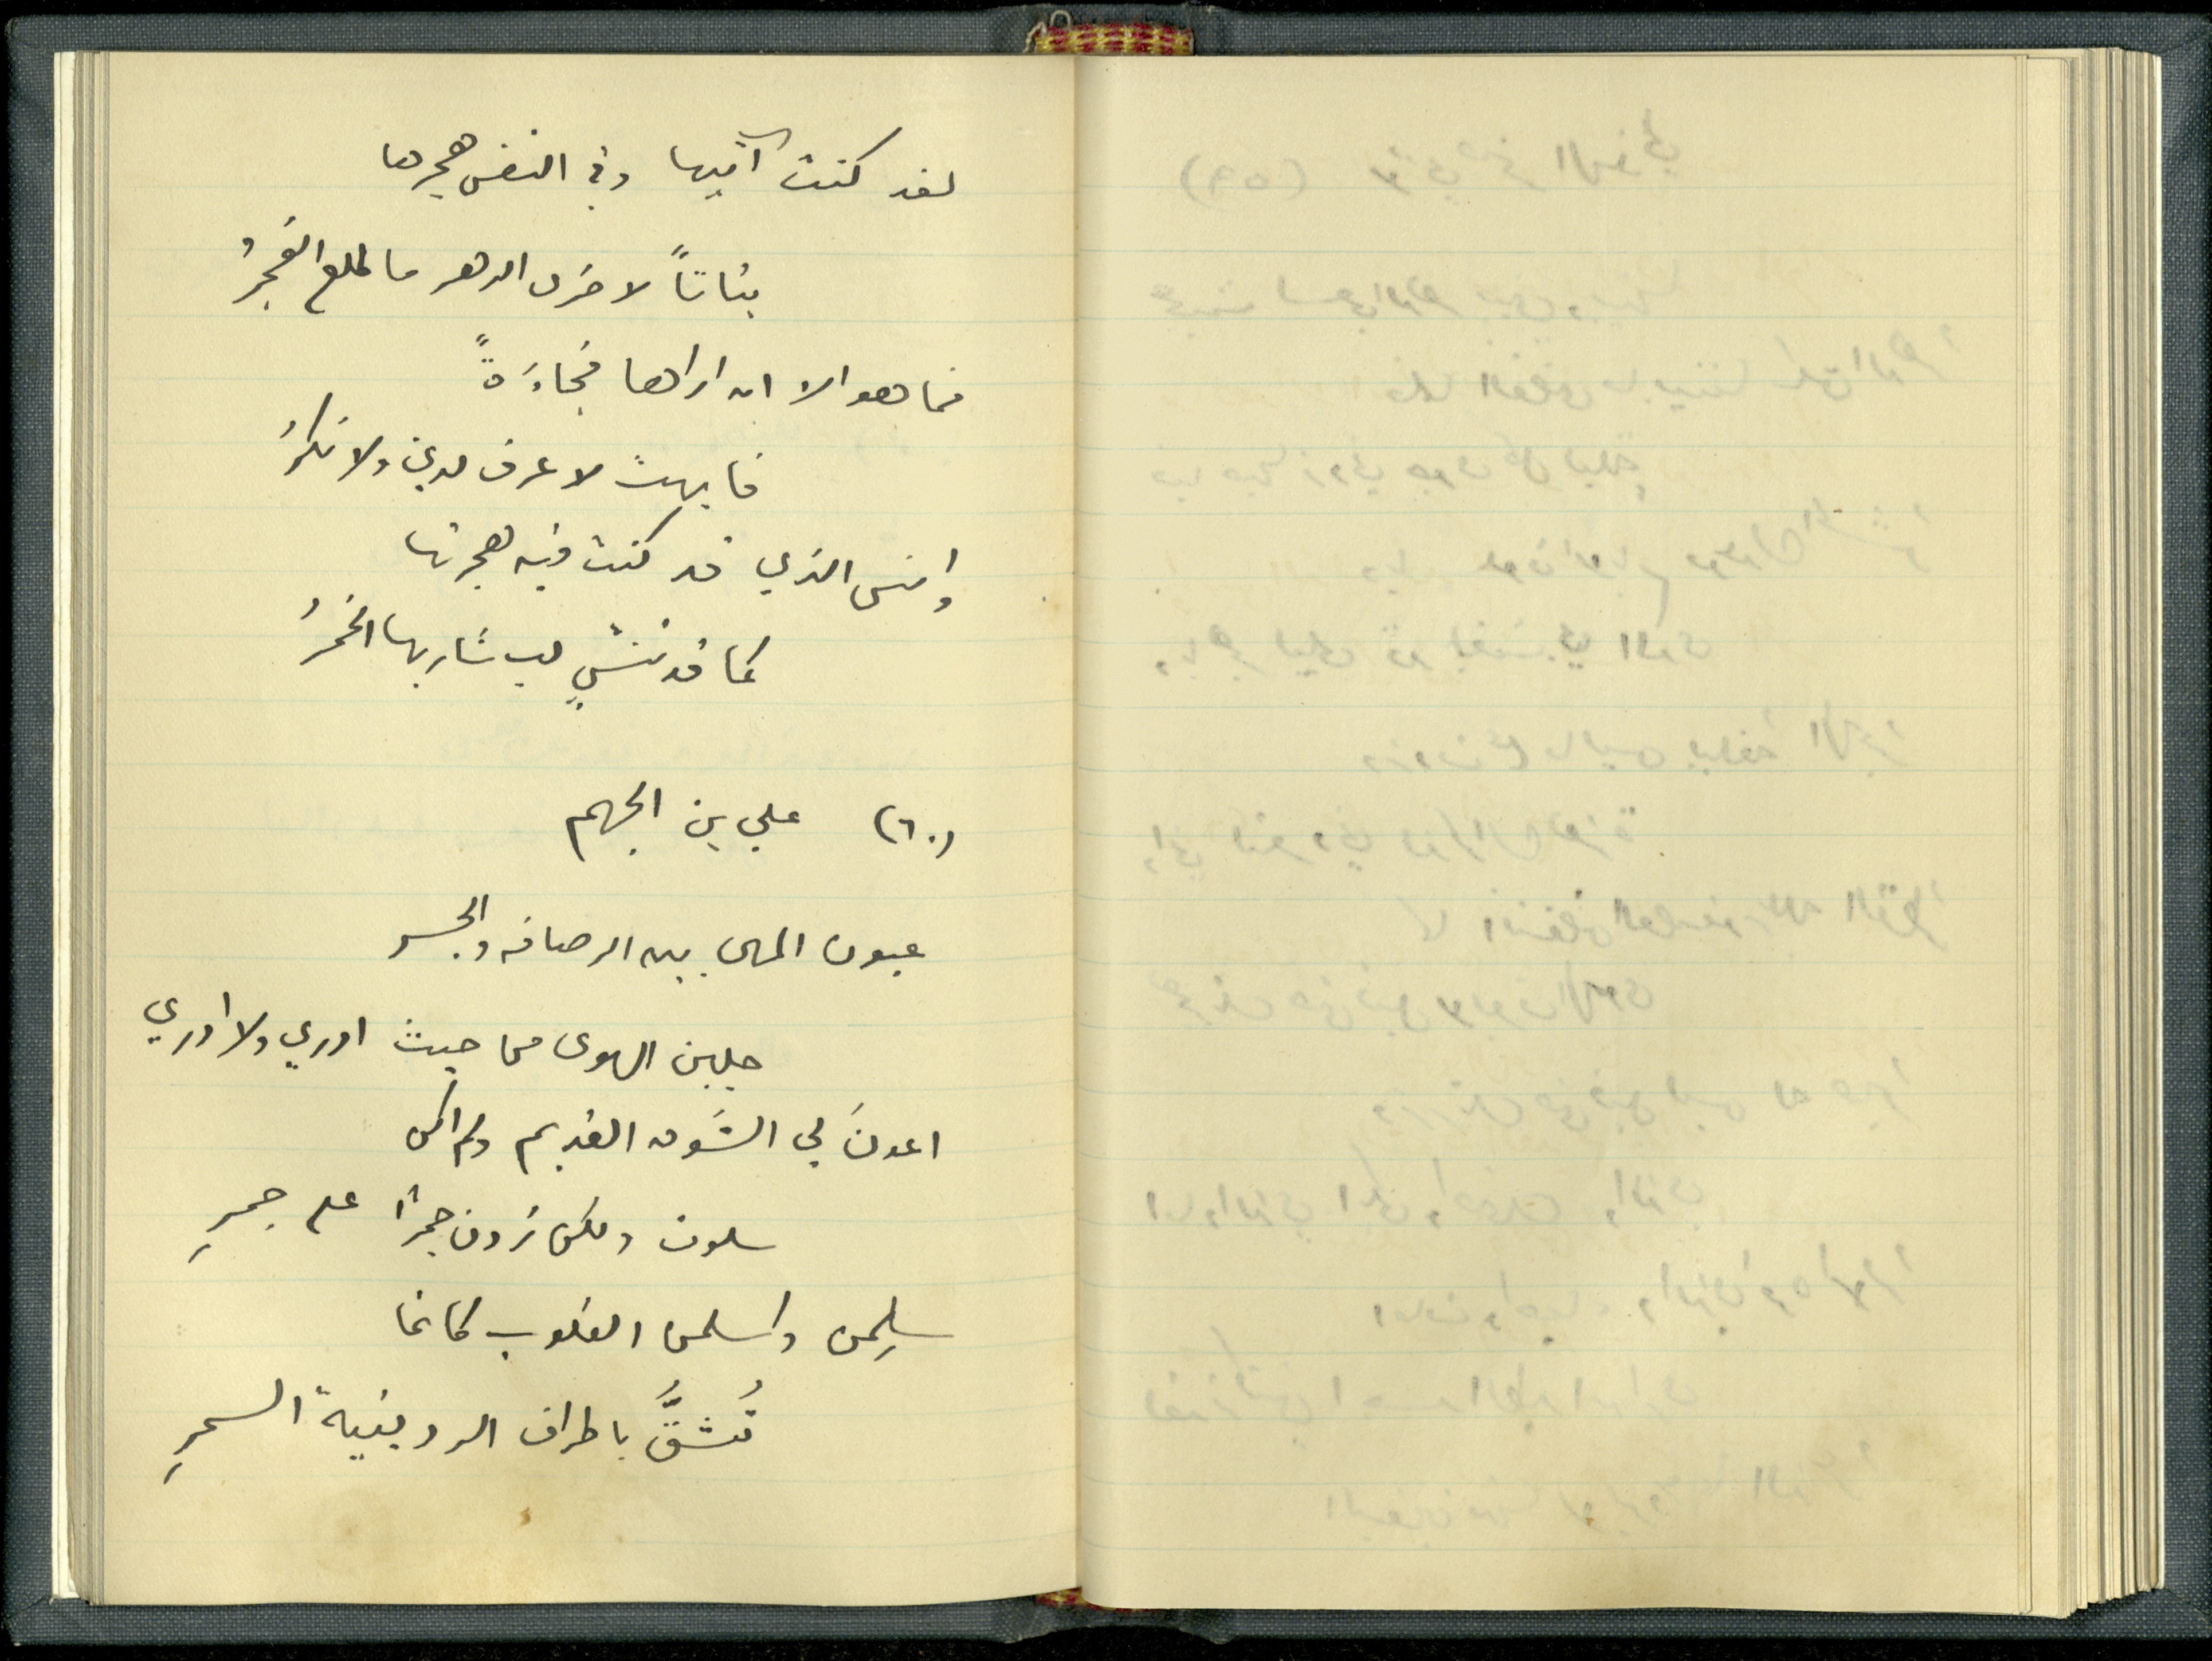 لقد كنت آتيها وفي النفس هجرها
بتاتاً لاخرى الدهر ما طلع الفجرُ
فما هو الا ان اراها فجاءَةً
فابهت لا عرف لدي ولا نكرُ
وانسى الذي قد كنت فيه هجرتها
كما قد تنسّي لب شاربها الخمرُ
(٦٠) علي بن الجهم
عيون المهى بين الرصافه والجسر
جلبن الهوى من حيث ادري ولا ادري
اعدنَ لي الشوق القديم ولم اكن
سلوت ولكن زدن جمراً على جمرِ
سلِمن واسلمن القلوب كانما
تُشقُّ باطراف الردينية السمرِ